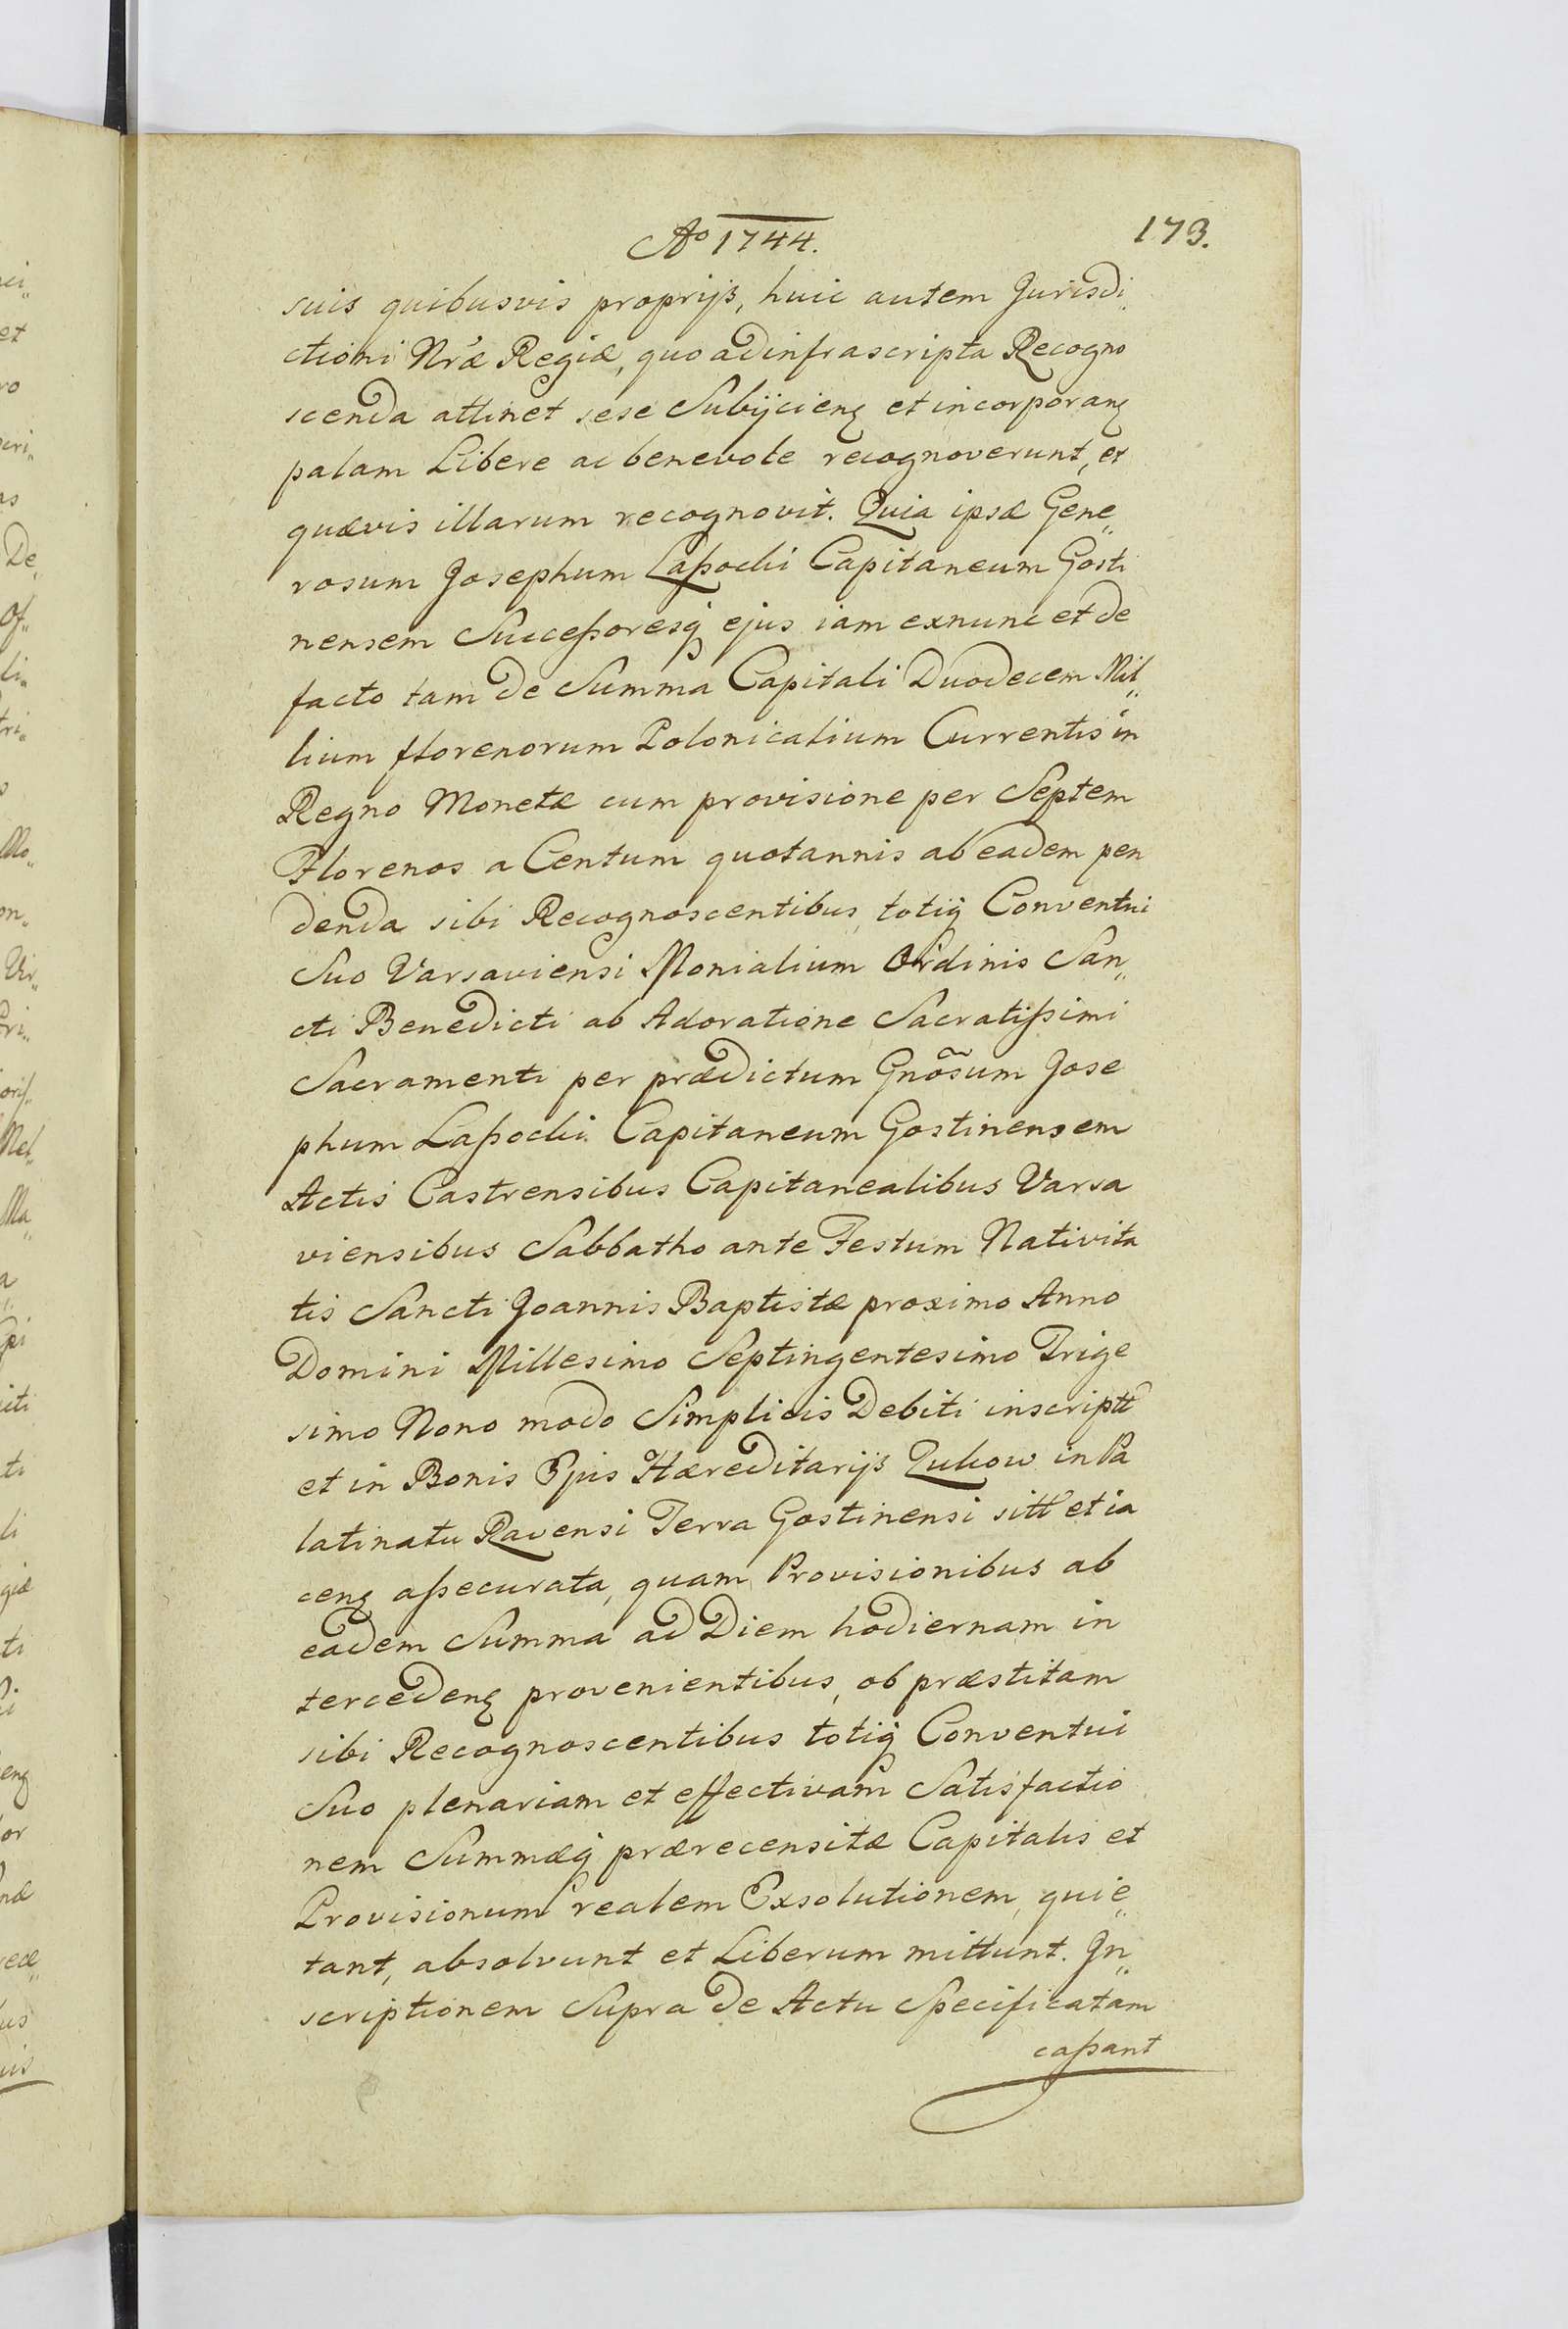 Ao 1744. 173.
suis quibusvis proprijs, huic autem Jurisdi
ctioni Nræ Regiæ, quo ad infrascripta Recogno
scenda attinet sese Subijcienʒ et incorporanʒ
palam Libere ac benevole recognoverunt, et
quævis illarum recognovit. Quia ipsæ Gene„
rosum Josephum Laßocki Capitaneum Gosti
nensem Succeßoresq ejus iam exnunc et de
facto tam de Summa Capitali Duodecem Mil„
lium florenorum Polonicalium Currentis in
Regno Monetæ cum provisione per Septem
Florenos a Centum quotannis ab eadem pen
denda sibi Recognoscentibus, totiq Conventui
Suo Varsaviensi Monialium Ordinis San„
cti Benedicti ab Adoratione Sacratißimi
Sacramenti per prædictum Gnõsum Jose
phum Laßocki Capitaneum Gostinensem
Actis Castrensibus Capitanealibus Varsa
viensibus Sabbatho ante Festum Nativita
tis Sancti Joannis Baptistæ proximo Anno
Domini Millesimo Septingentesimo Trige
simo Nono modo Simplicis Debiti inscriptt
et in Bonis Ejus Hæreditarijs Lukow in Pa
latinatu Ravensi Terra Gostinensi sitt et ia
cenʒ aßecurata, quam Provisionibus ab
eadem Summa ad Diem hodiernam in
tercedenʒ provenientibus, ob præstitam
sibi Recognoscentibus totiq Conventui
Suo plenariam et effectivam Satisfactio
nem Summæq prærecensitæ Capitalis et
Provisionum realem Exsolutionem, quie„
tant, absolvunt et Liberum mittunt. In„
scriptionem Supra de Actu Specificatam
caßant